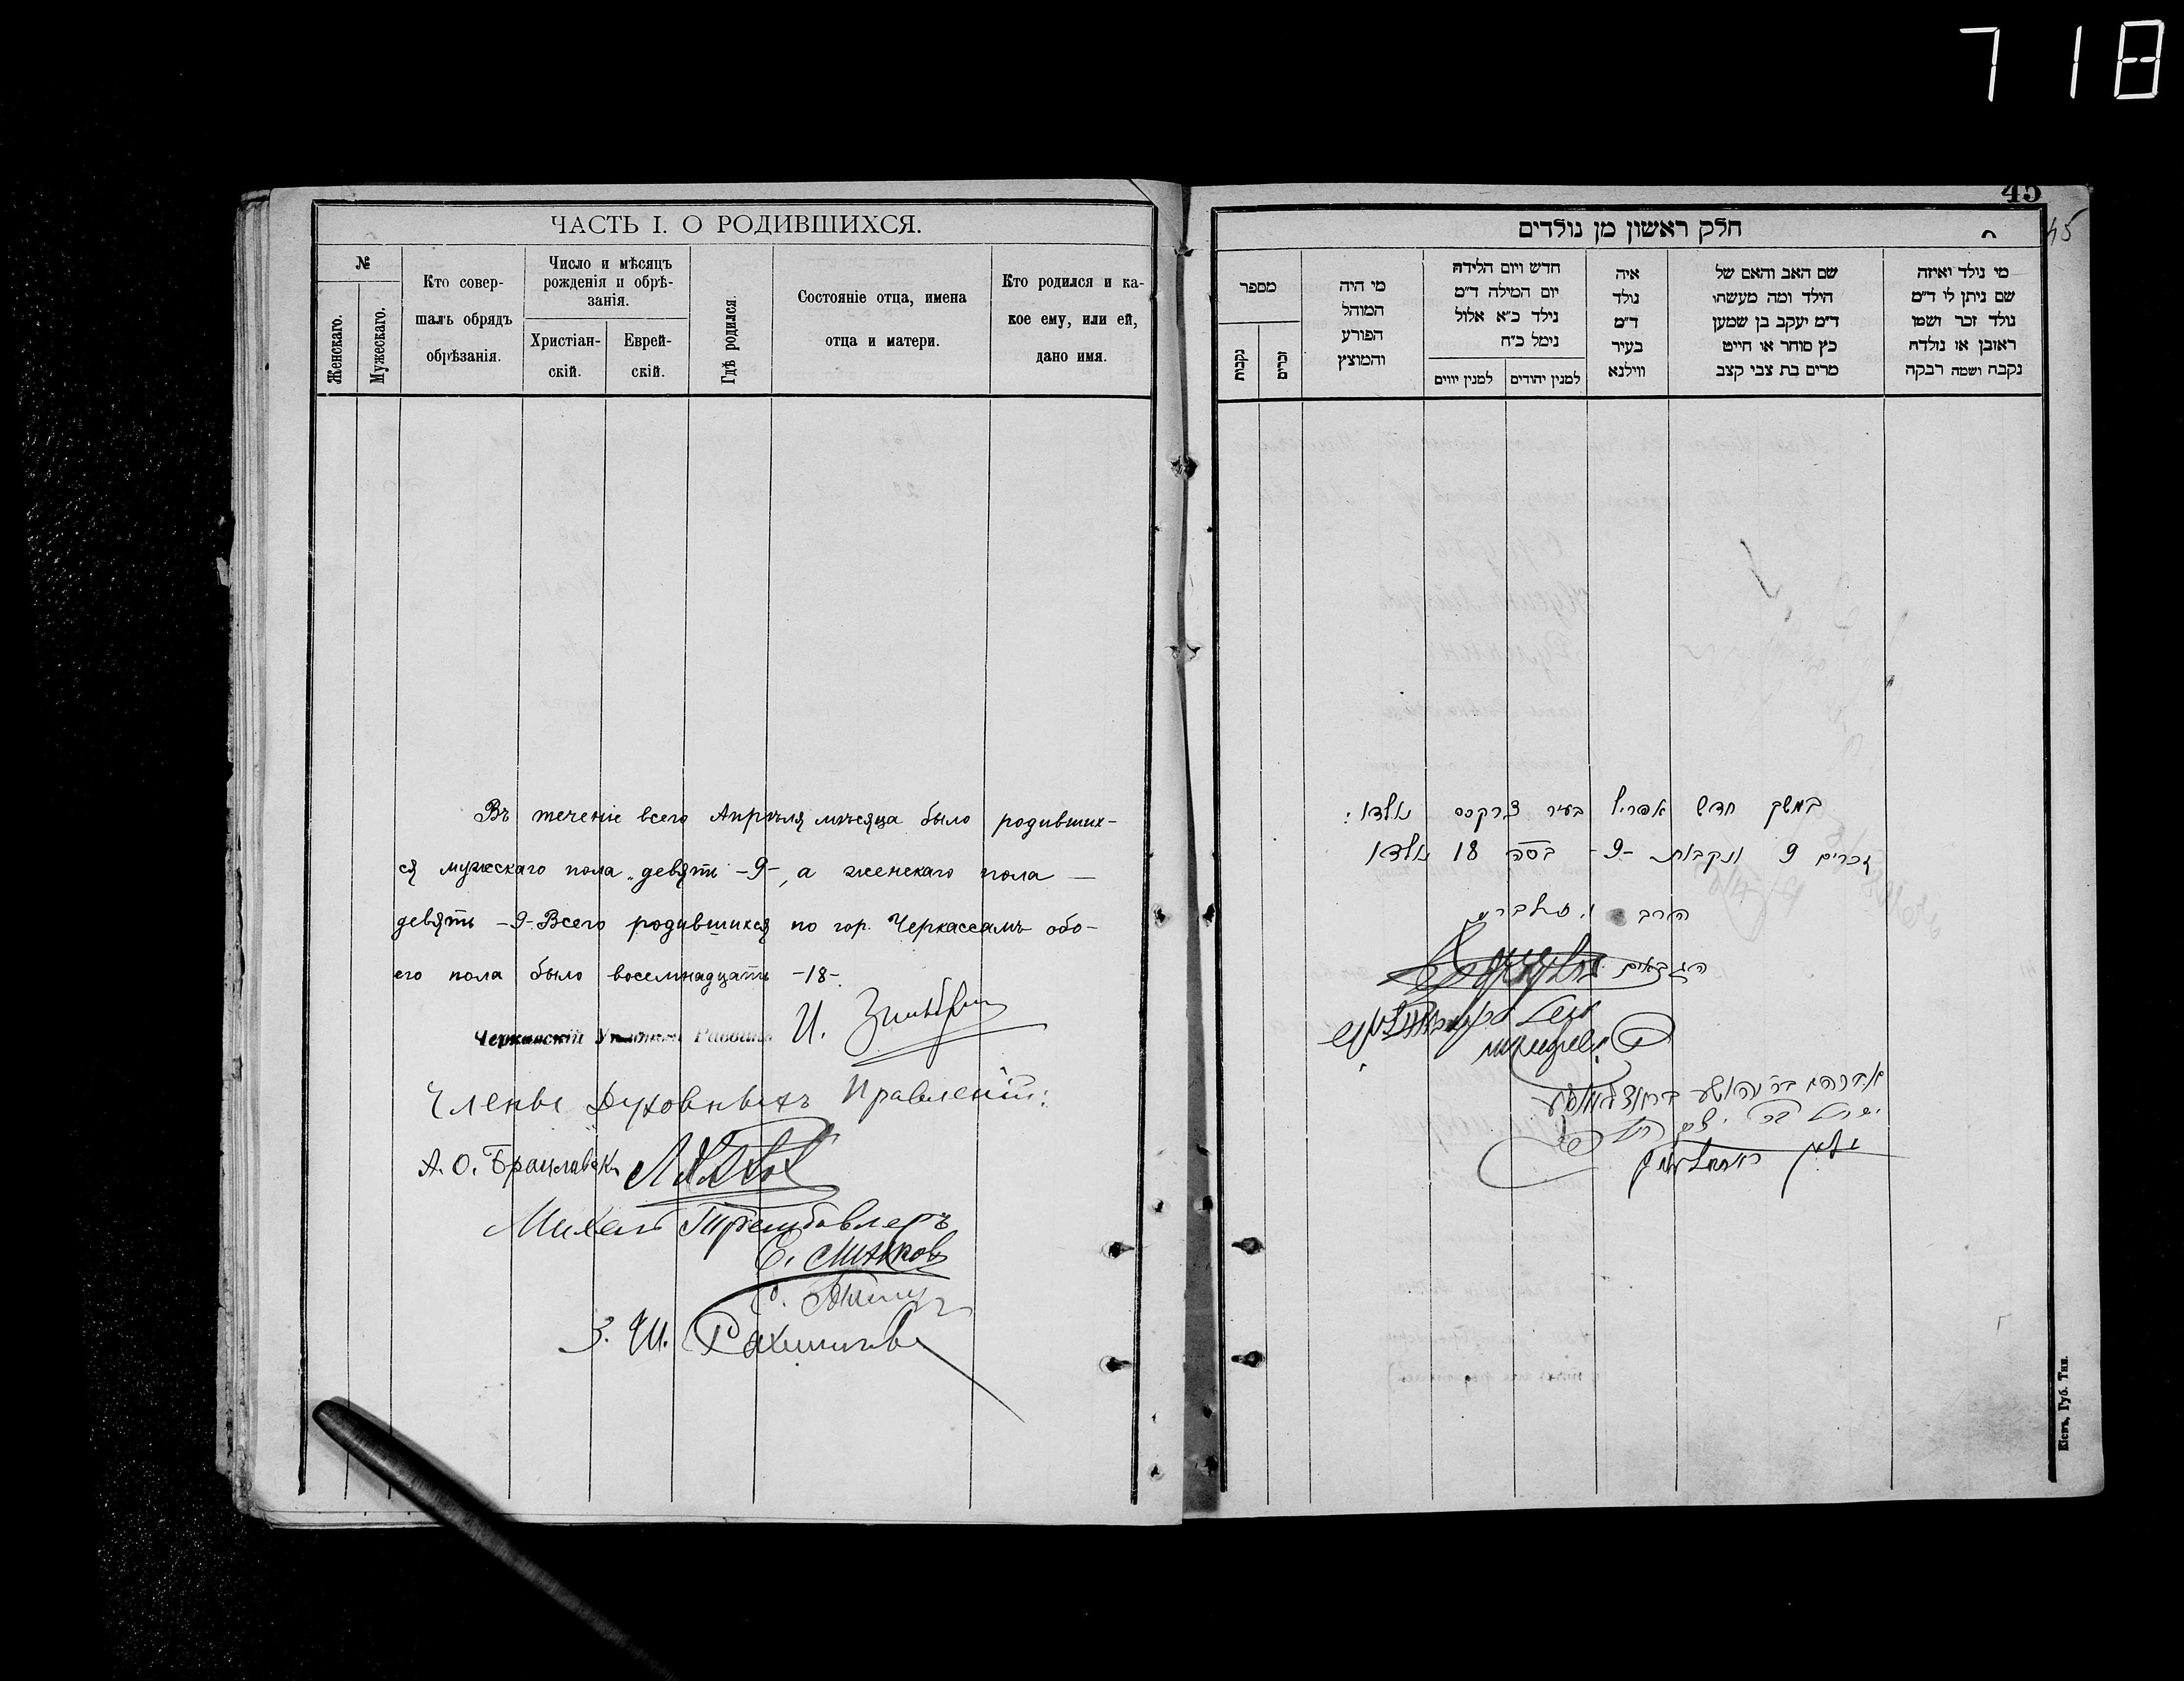 718
ЧАСТЬ I. О РОДИВШИХСЯ.
№
Женскаго.
Мужескаго.
Кто совер-
шалъ обрядъ
обрѣзанія.
Число и мѣсяцъ
рожденія и обрѣ-
занія.
Христіан-
скій.
Еврей-
скій.
Гдѣ родился.
Состояніе отца, имена
отца и матери.
Кто родился и ка-
кое ему, или ей,
дано имя.
Въ теченіе всего Апрѣля мѣсяца было родивших-
ся мужескаго пола девять -9-, а женскаго пола —
девять -9- Всего родившихся по гор. Черкассамъ обо-
его пола было восемнадцать -18-
Черкасскій Раввинъ И.
Члены Духовныхъ Правленій:
А. О. Брацлавск
Михель
З. Ш.
45
45
חלק ראשון מן נולדים
מספר
נקבות
זכרים
מי היה
המוהל
הפורע
והמוצץ
חדש ויום הלידה
יום המילה ד"מ
נילד כ"א אלול
נימל כ"ח
למנין יווים
למנין יהודים
איה
נולד
ד"מ
בעיר
ווילנא
שם האב והאם של
הילד ומה מעשהו
ד"מ יעקב בן שמען
כץ סוחר או חייט
מרים בת צבי קצב
מי נולד ואיזה
שם ניתן לו ד"מ
נולד זכר ושמו
ראובן או נולדה
נקבה ושמה רבקה
במשך חדש אפריל בעיר צרקסס נולדו:
זכרים 9 ונקבות -9- בסה 18 נולדו
הרב
הגבאים
Кіевъ, Губ. Тип.